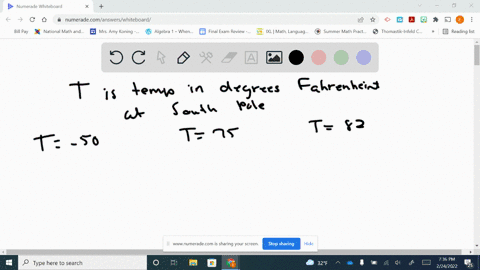 Numerade Whiteboard
numerade.com/answers/whiteboard/
Bill Pay
National Math and
Mrs. Amy Koning -
Algebra 1 - When
Final Exam Review -
IXL | Math, Language
Summer Math Pract
Thomastik-Infeld C
Reading list
T is temp in degrees Fahrenheit
at South Pole
T = -50 T = 75 T = 82
www.numerade.com is sharing your screen. Stop sharing Hide
Type here to search
32°F
7:36 PM
2/24/2022